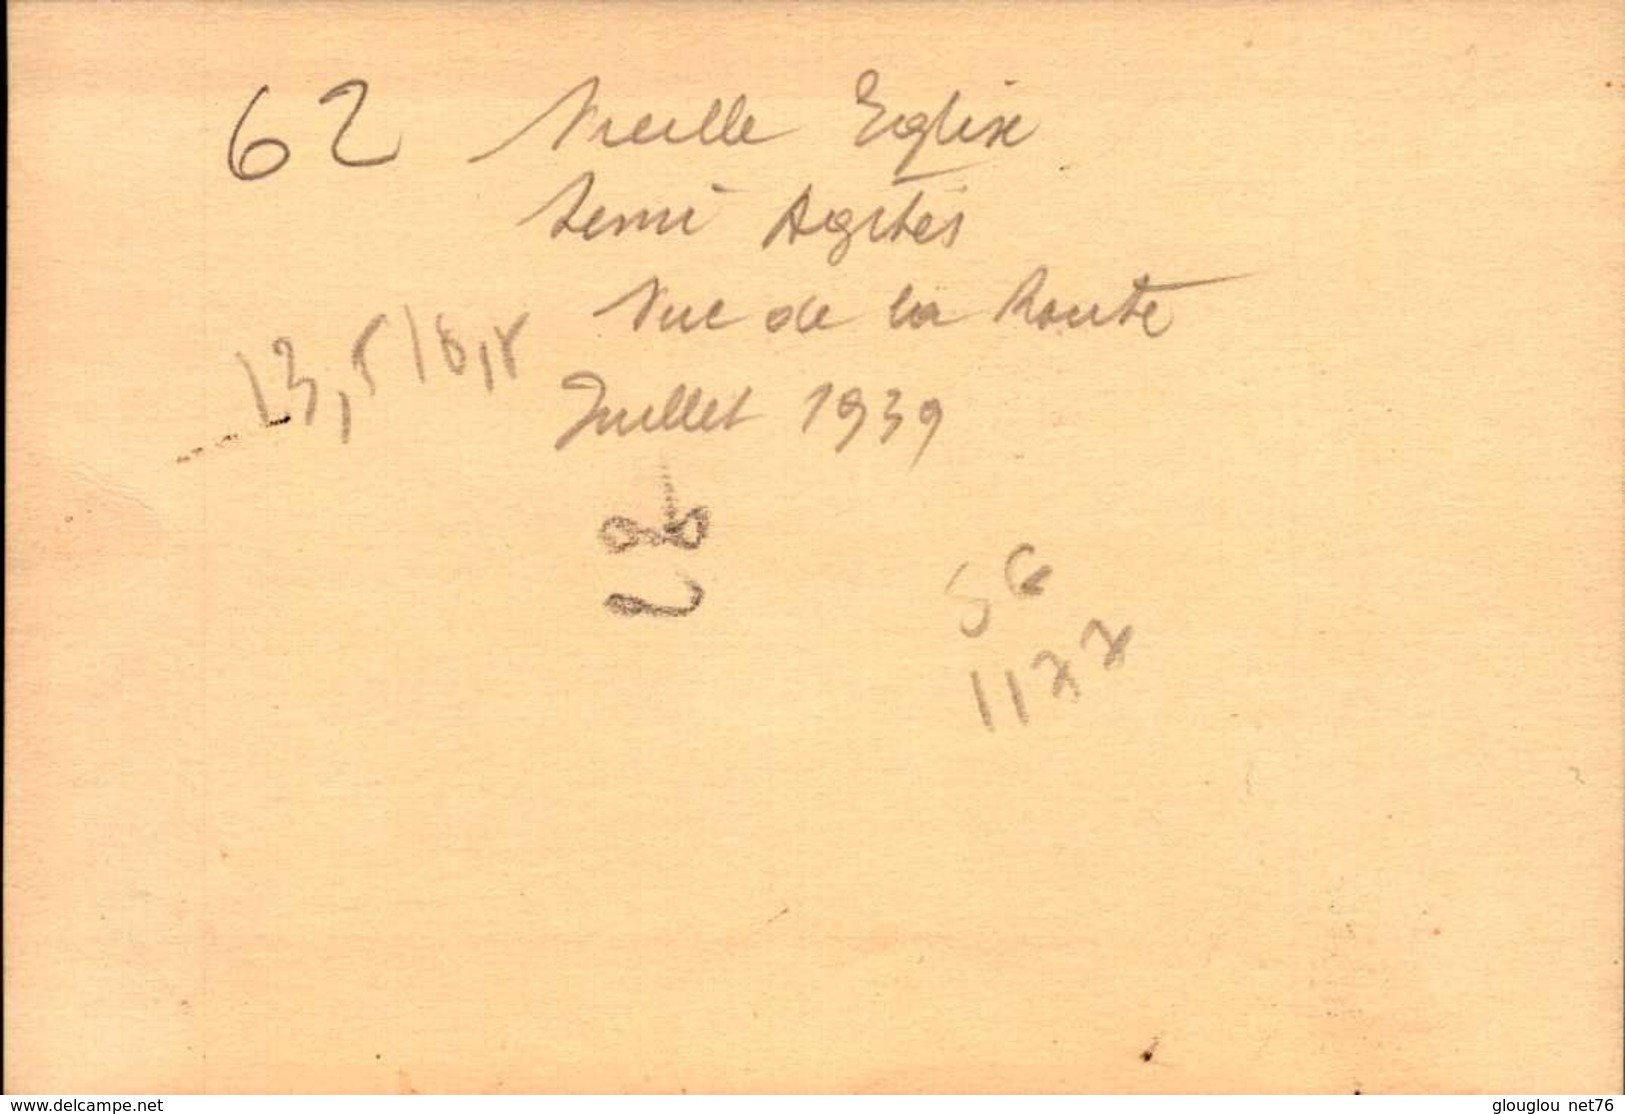 62 Vieille Eglise
Semi Agités
Vue de la Route
13,5/8,8
Juillet 1939
28
56
1177
www.delcampe.net
glouglou_net76